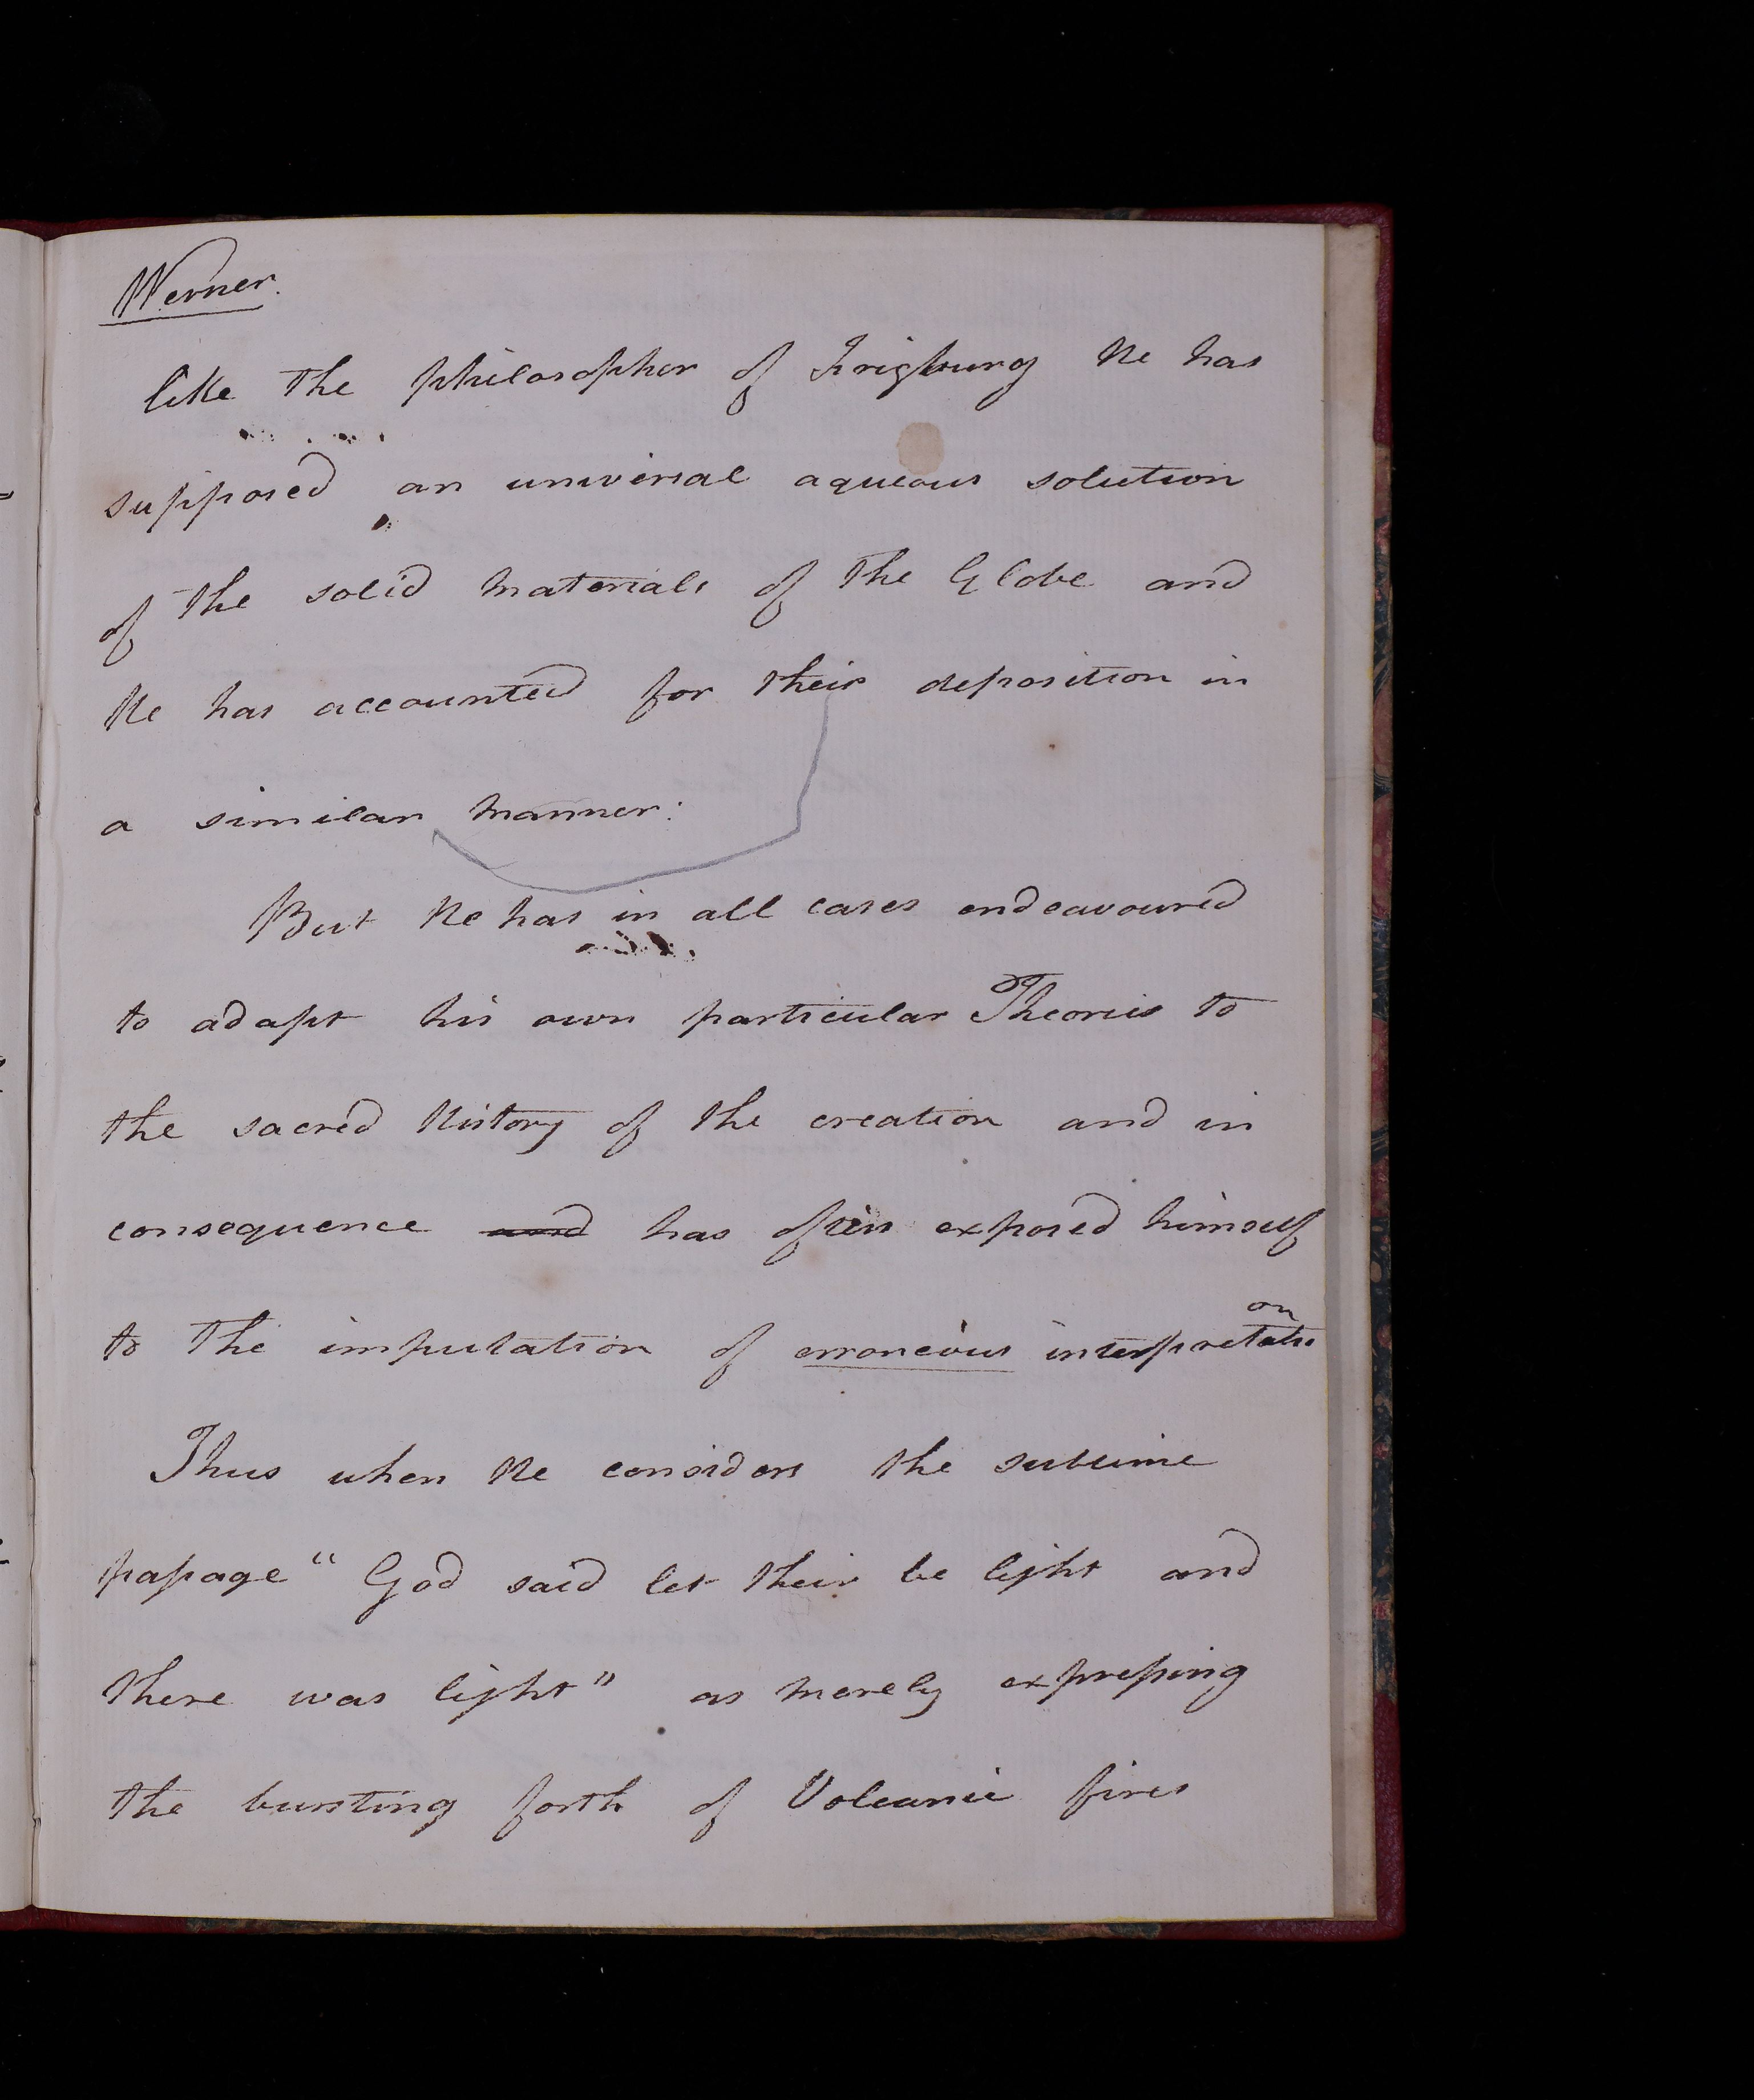 Werner.
like the philosopher of Frigburg he has
supposed an universal aqueous solution
of the solid materials of the Globe and
he has accounted for their deposition in
a similar manner:
But he has in all cases endeavoured
to adapt his own particular Theories to
the sacred history of the creation and in
consequence and has often exposed himself
to the imputation of erroneous interpretation
Thus when he considers the sublime
passage "God said let their be light and
there was light" as merely expressing
the bursting forth of Volcanic fires